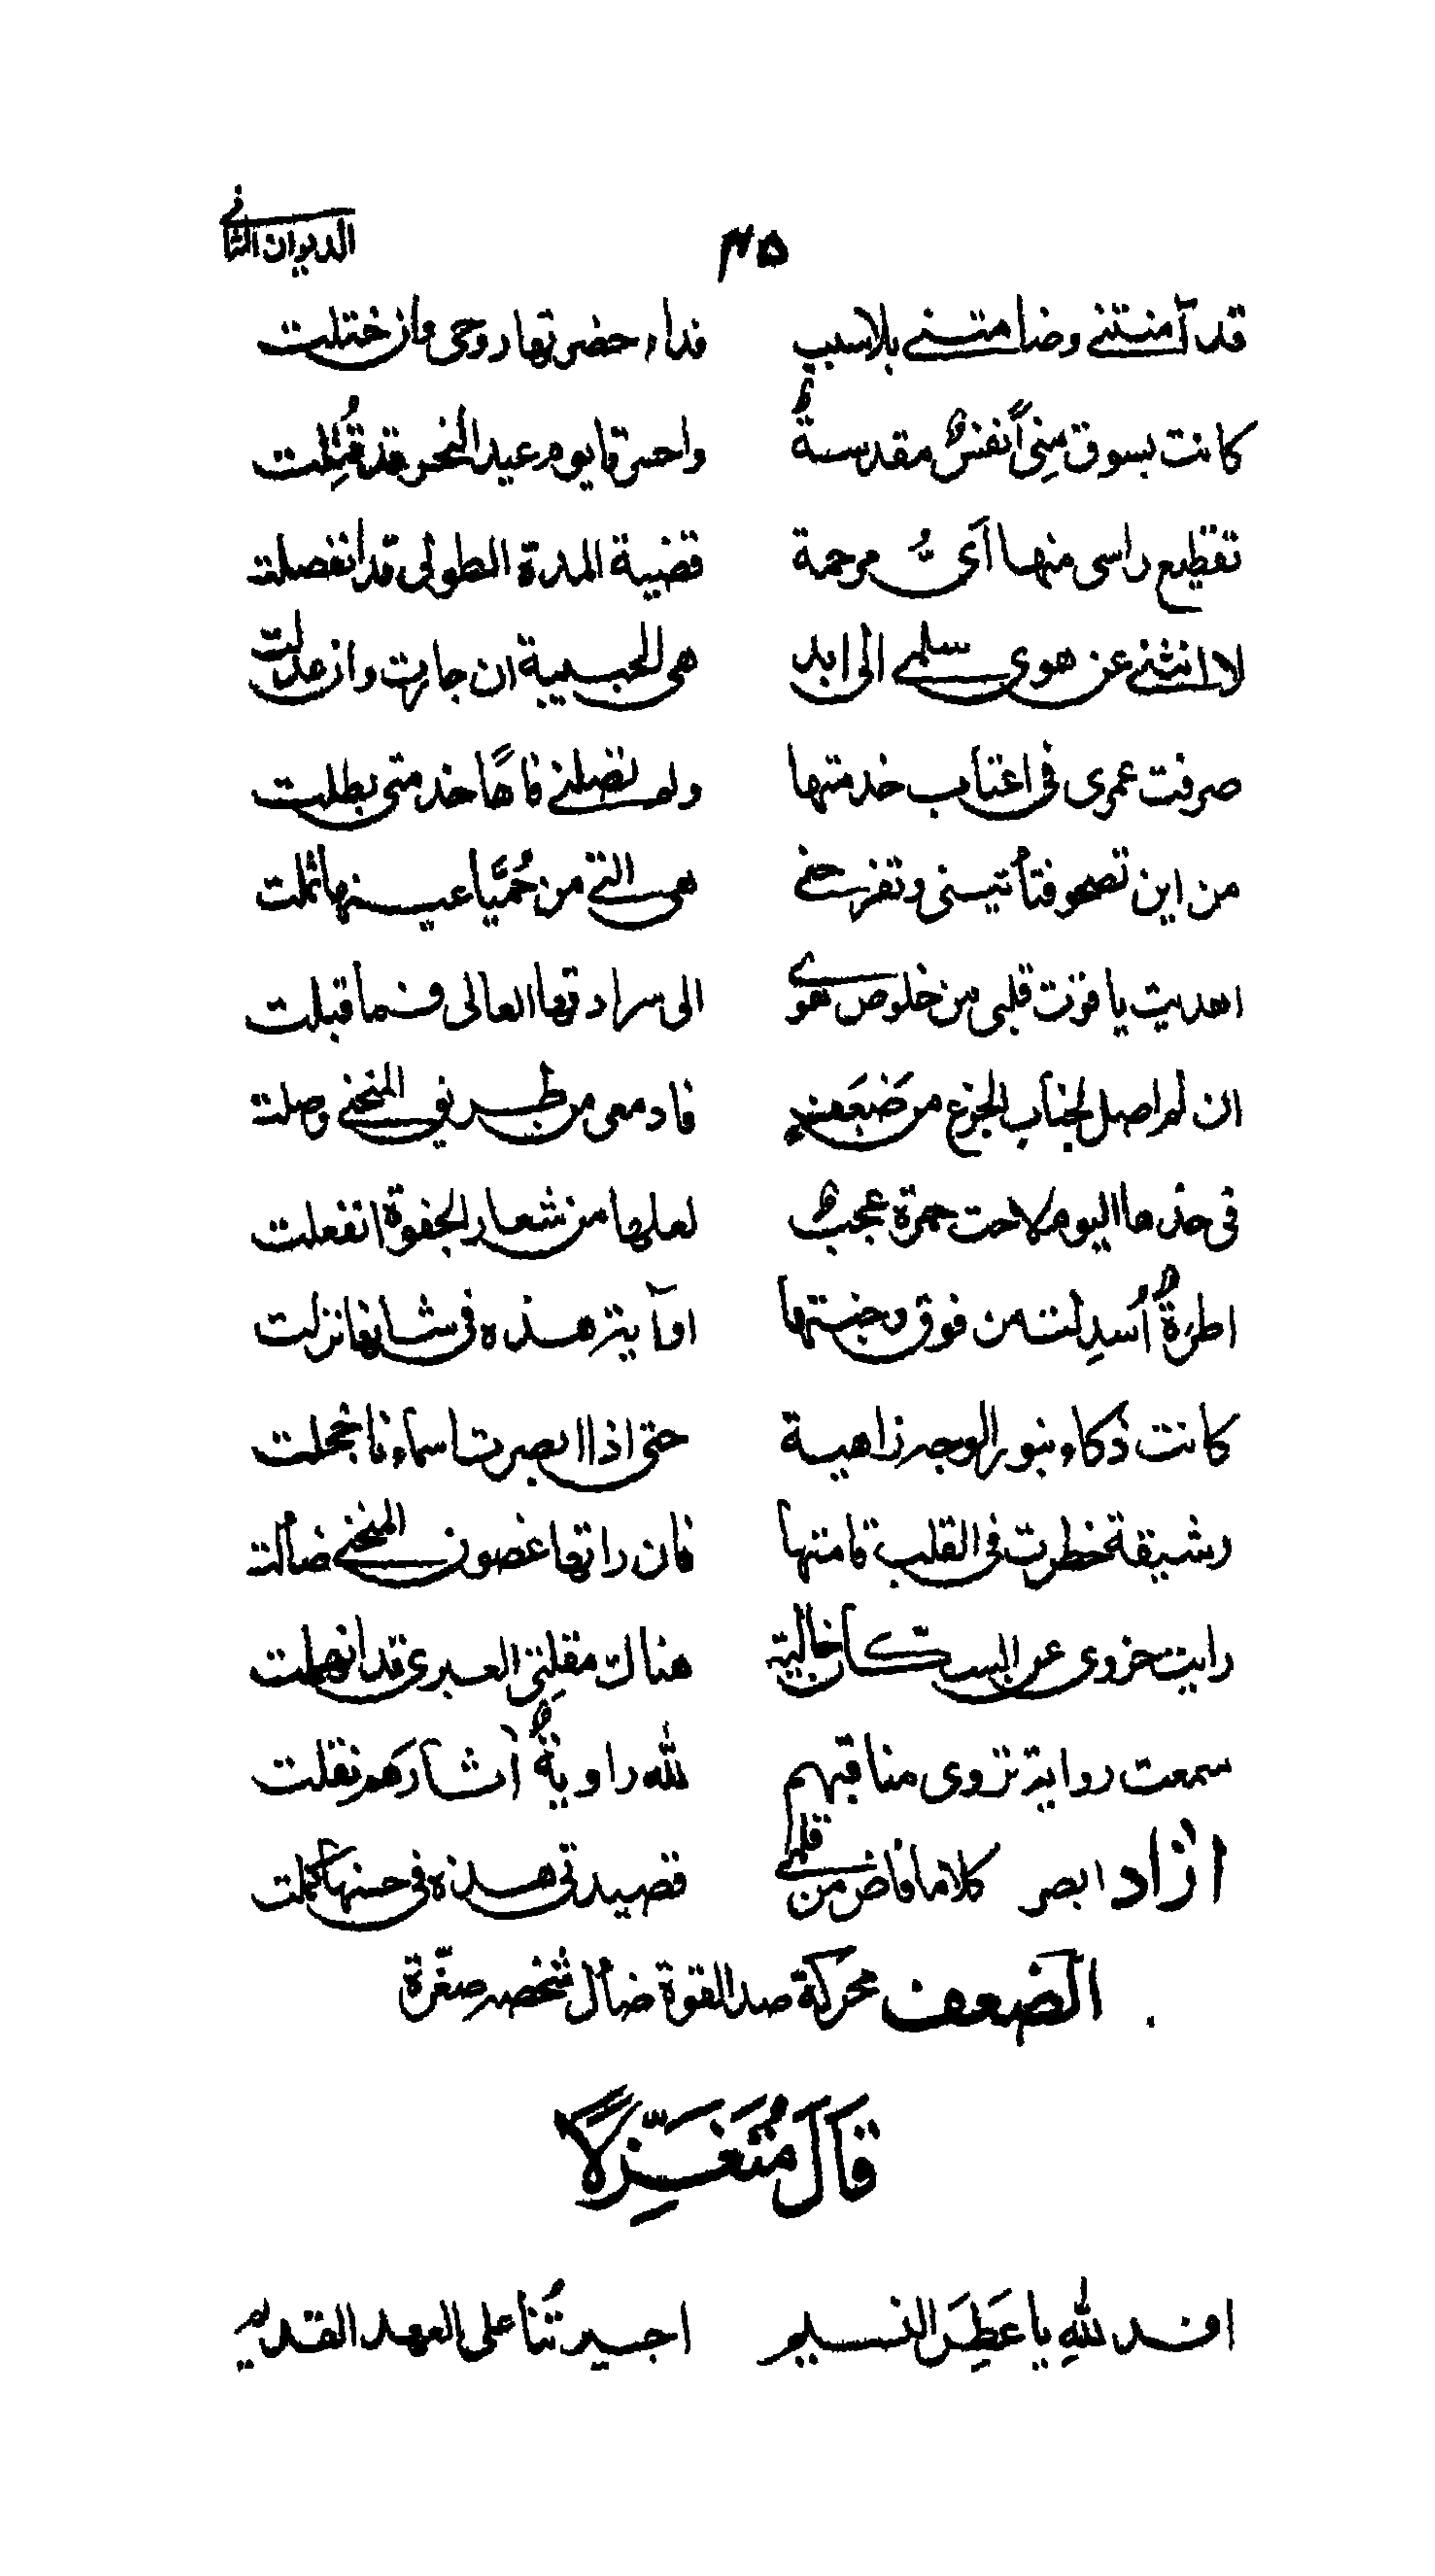 ٤٥ الديوان الثاني
قد آمنتني وضامتني بلا سبب فداء حضرتها روحي وان ختلت
كانت بسوق مِنىً أنفسٌ مقدسةٌ واحسرتا يوم عيد النحر قد قُتِلت
تقطيع راسى منها آىُّ مرحمة قضية المدة الطولى قد انفصلت
لا انثني عن هوى سلمى الى ابد هى الحبيبة ان جارت وان عدلت
صرفت عمرى فى اعتاب خدمتها ولم تصلني فآهًا خدمتى بطلت
من اين تصحو فتأتيني وتفرحني هى التي من حُمَيَّا عينها ثملت
اهديت ياقوت قلبى من خلوص هوى الى سرادقها العالى فما قبلت
ان لم اصل لجناب الجزع من ضَعَفٍ فادمعى من طريق المنحنى وصلت
فى خدها اليوم لاحت حمرة عجبٌ لعلها من شعار الجفوة انفعلت
اطرةٌ اُسدِلت من فوق وجنتها او آية هذه فى شانها نزلت
كانت ذكاء بنور الوجه زاهية حتى اذا ابصرت اسماءنا خجلت
رشيقة خطرت فى القلب قامتها فان راتها غصون المنحنى ضألت
رايت حزوى عن السكّان خالية هناك مقلتِى العبرى قد انهملت
سمعت رواية تروى مناقبهم لله راويةٌ آثارَهم نقلت
ازاد ابصر كلاما فاض من قلمي قصيدتى هذه فى حسنها كملت
الضعف محركة ضد القوة ضأل شخصه صغرة
قَالَ مُتَغَزِّلًا
افد للهِ يا عَطِرَ النسيم اجيرتُنا على العهد القديم